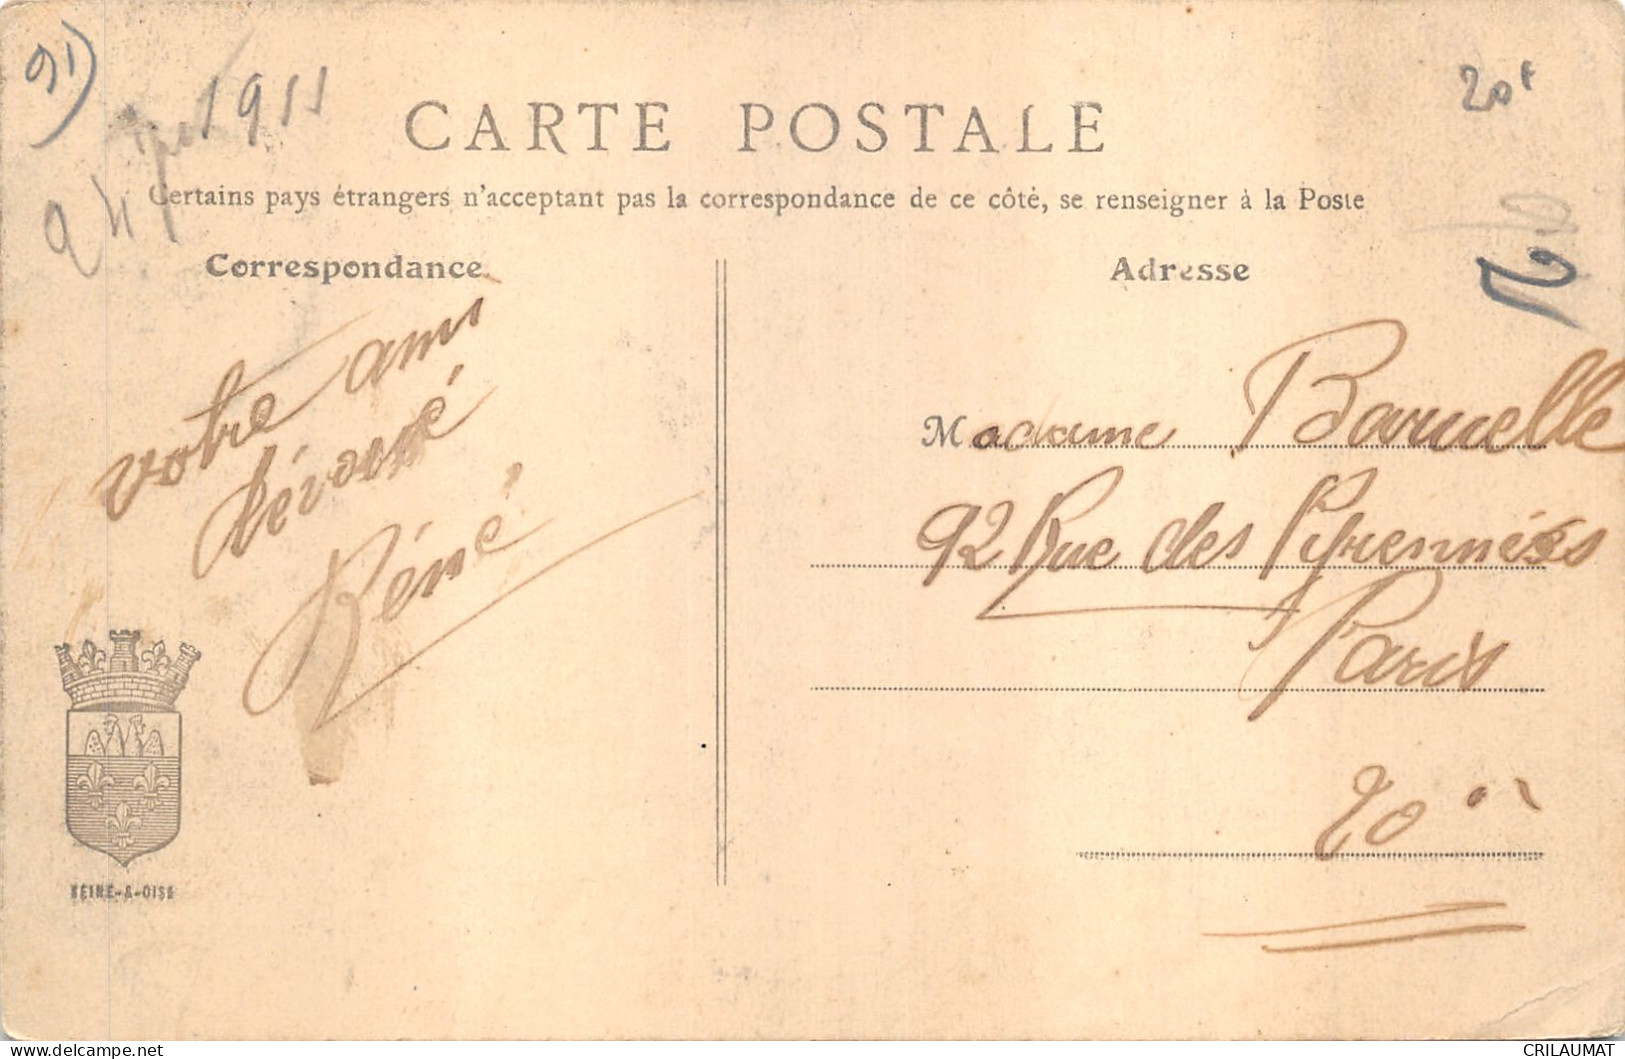 91)
1911
20F
CARTE POSTALE
Certains pays étrangers n'acceptant pas la correspondance de ce côté, se renseigner à la Poste
Correspondance
votre ami
dévoué
Réné
SEINE-&-OISE
Adresse
Madame Baruelle
92 Rue des Pyrennées
Paris
20
delcampe.net
CRILAUMAT